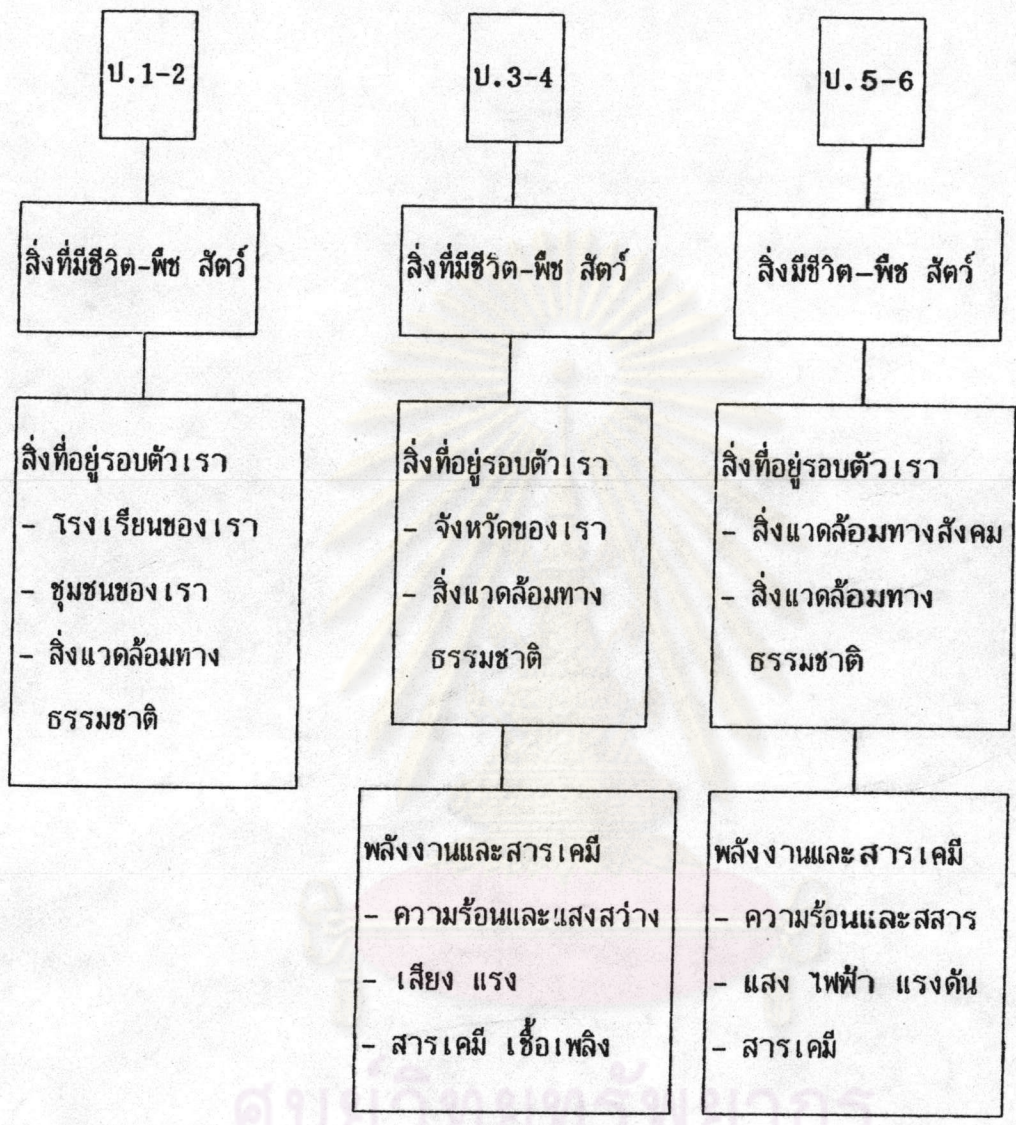 ป.1-2
สิ่งที่มีชีวิต-พืช สัตว์
สิ่งที่อยู่รอบตัวเรา
- โรงเรียนของเรา
- ชุมชนของเรา
- สิ่งแวดล้อมทาง
ธรรมชาติ
ป.3-4
สิ่งที่มีชีวิต-พืช สัตว์
สิ่งที่อยู่รอบตัวเรา
- จังหวัดของเรา
- สิ่งแวดล้อมทาง
ธรรมชาติ
พลังงานและสารเคมี
- ความร้อนและแสงสว่าง
- เสียง แรง
- สารเคมี เชื้อเพลิง
ป.5-6
สิ่งมีชีวิต-พืช สัตว์
สิ่งที่อยู่รอบตัวเรา
- สิ่งแวดล้อมทางสังคม
- สิ่งแวดล้อมทาง
ธรรมชาติ
พลังงานและสารเคมี
- ความร้อนและสสาร
- แสง ไฟฟ้า แรงดัน
- สารเคมี
ศูนย์วิทยทรัพยากร